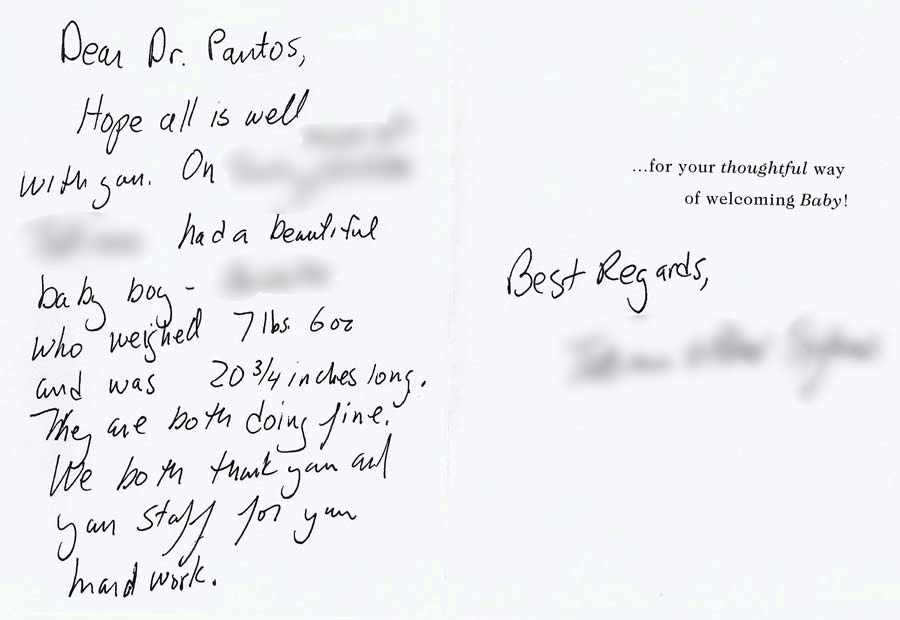 Dear Dr. Pantos,
Hope all is well
with you. On
had a beautiful
baby boy -
who weighed 7 lbs 6 oz
and was 20 3/4 inches long.
They are both doing fine.
We both thank you and
your staff for your
hard work.
...for your thoughtful way
of welcoming Baby!
Best Regards,